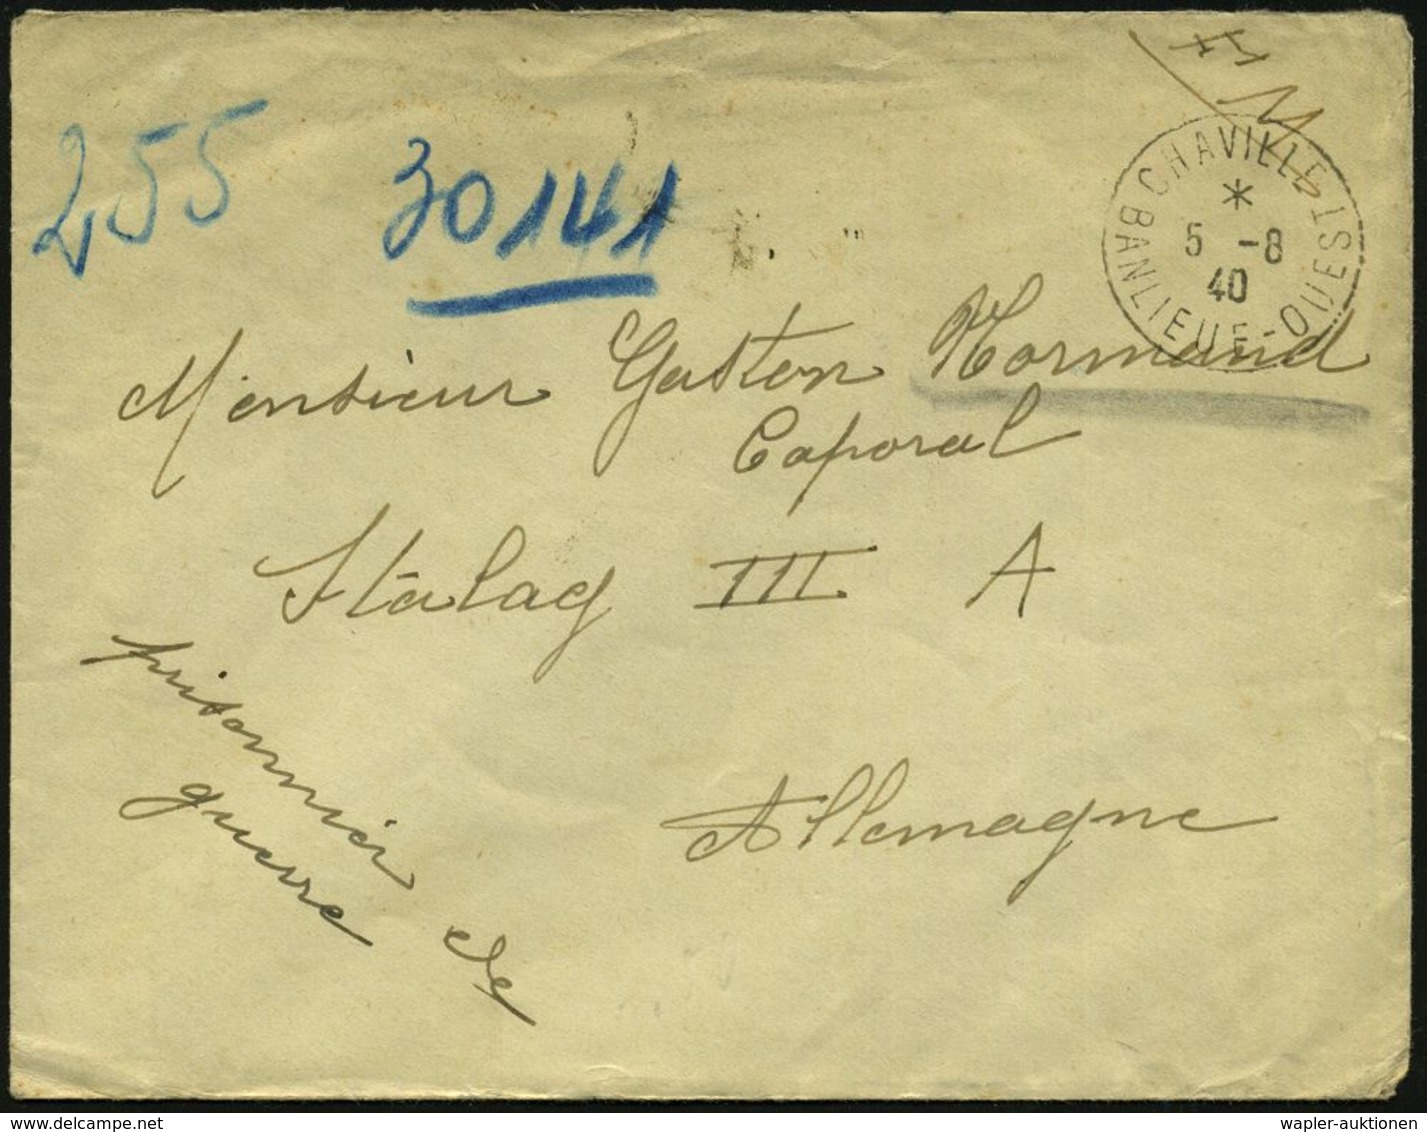 255
30141
F M
CHAVILLE
*
5 -8
40
BANLIEUE-OUEST
Monsieur Gaston Normand
Caporal
Stalag III A
prisonnier de
guerre
Allemagne
wapler-auktionen